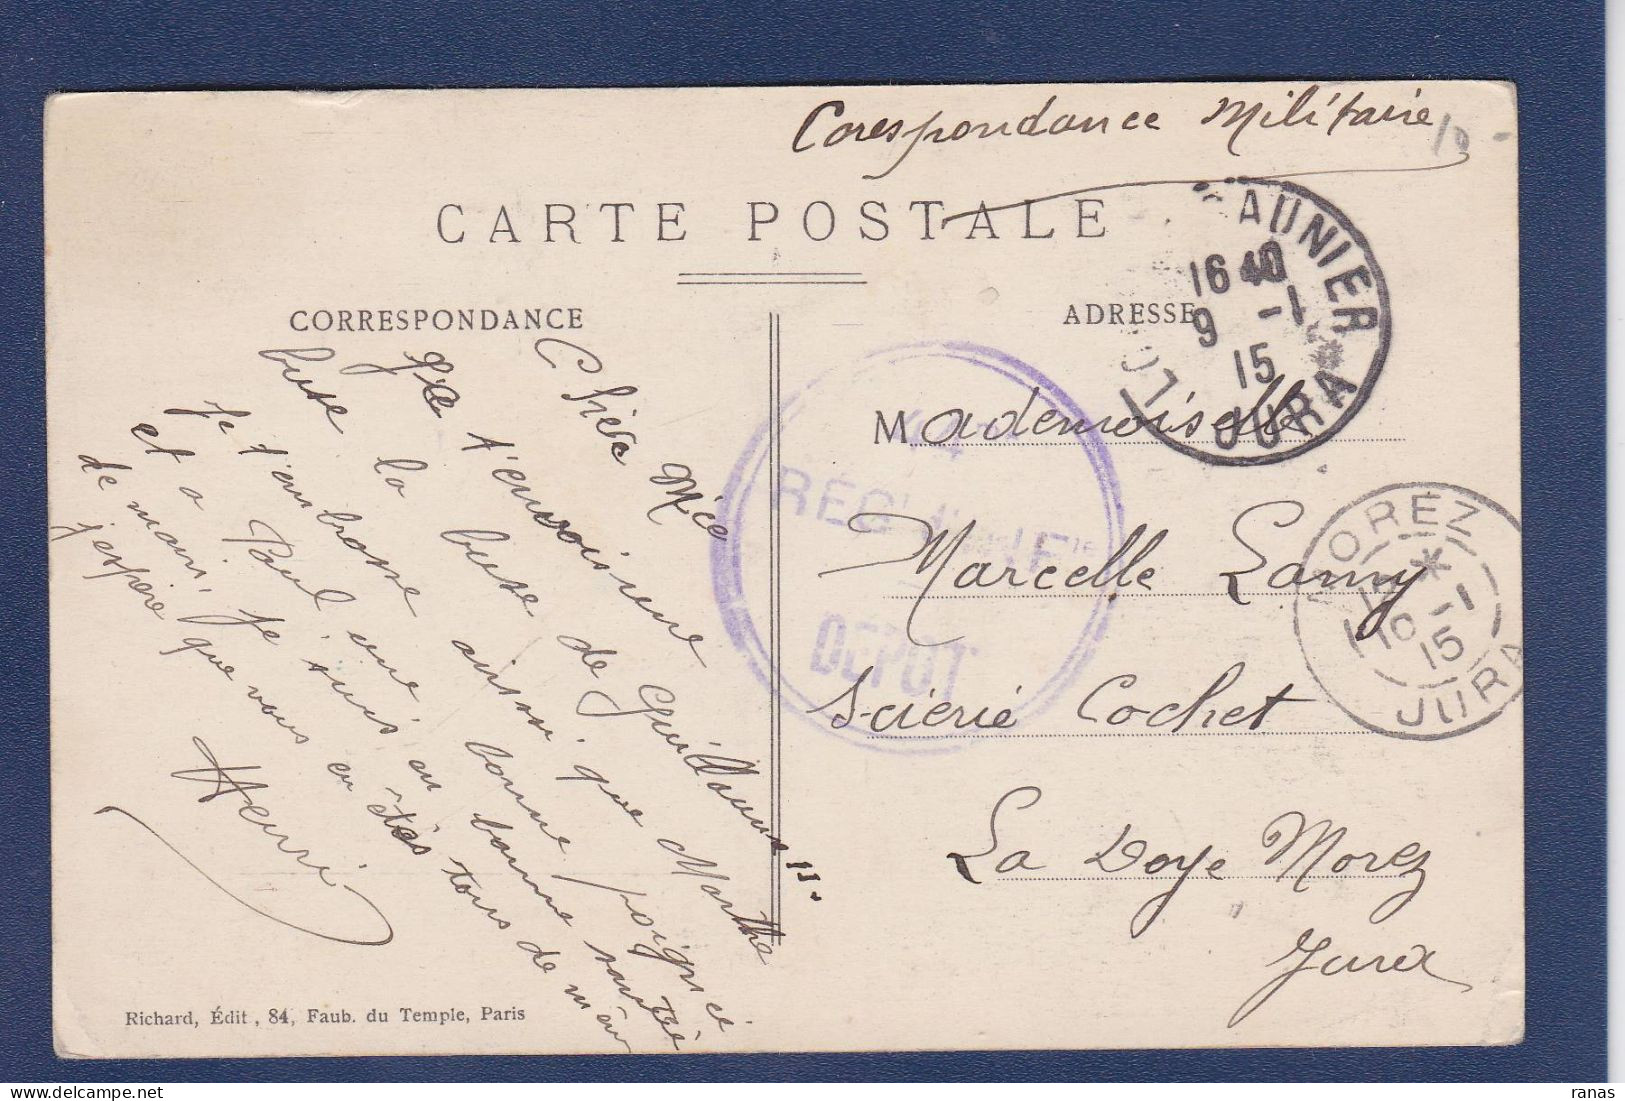 Corespondance Militaire
10 -
CARTE POSTALE
CORRESPONDANCE
ADRESSE
AUNIER
16 40
9 -1
15
JURA
Chère Mice
t'envoi
la buse de Guillaume !!.
buse ainsi que Marthe
Je t'embrasse
et a Paul une bonne poignée
de main, je suis en bonne santée
j'espère que vous en êtes tous de même
Henri
44
REGt d'INFie
DEPOT
Mademoiselle
Marcelle Lamy
Scierie Cochet
La Doye Morez
Jura
MOREZ
10 -1
15
JURA
Richard, Édit, 84, Faub. du Temple, Paris
ranas